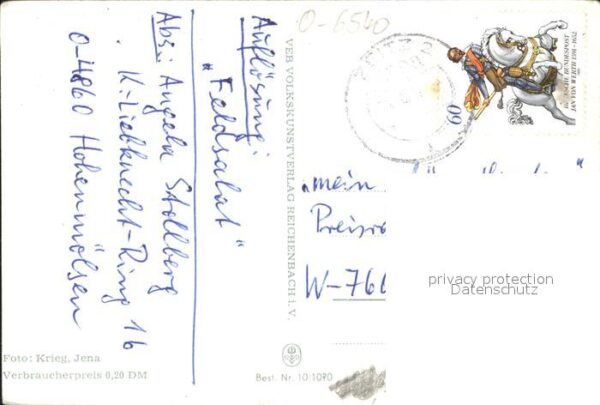 Auflösung:
"Feldsalat"
Abs.: Angela Stollberg
K.-Liebknecht-Ring 16
O-4860 Hohenmölsen
Foto: Krieg, Jena
Verbraucherpreis 0,20 DM
VEB VOLKSKUNSTVERLAG REICHENBACH i. V.
Best. Nr. 10/1090
O-6540
ZEITZ 2
60
"mein
W-766
privacy protection
Datenschutz